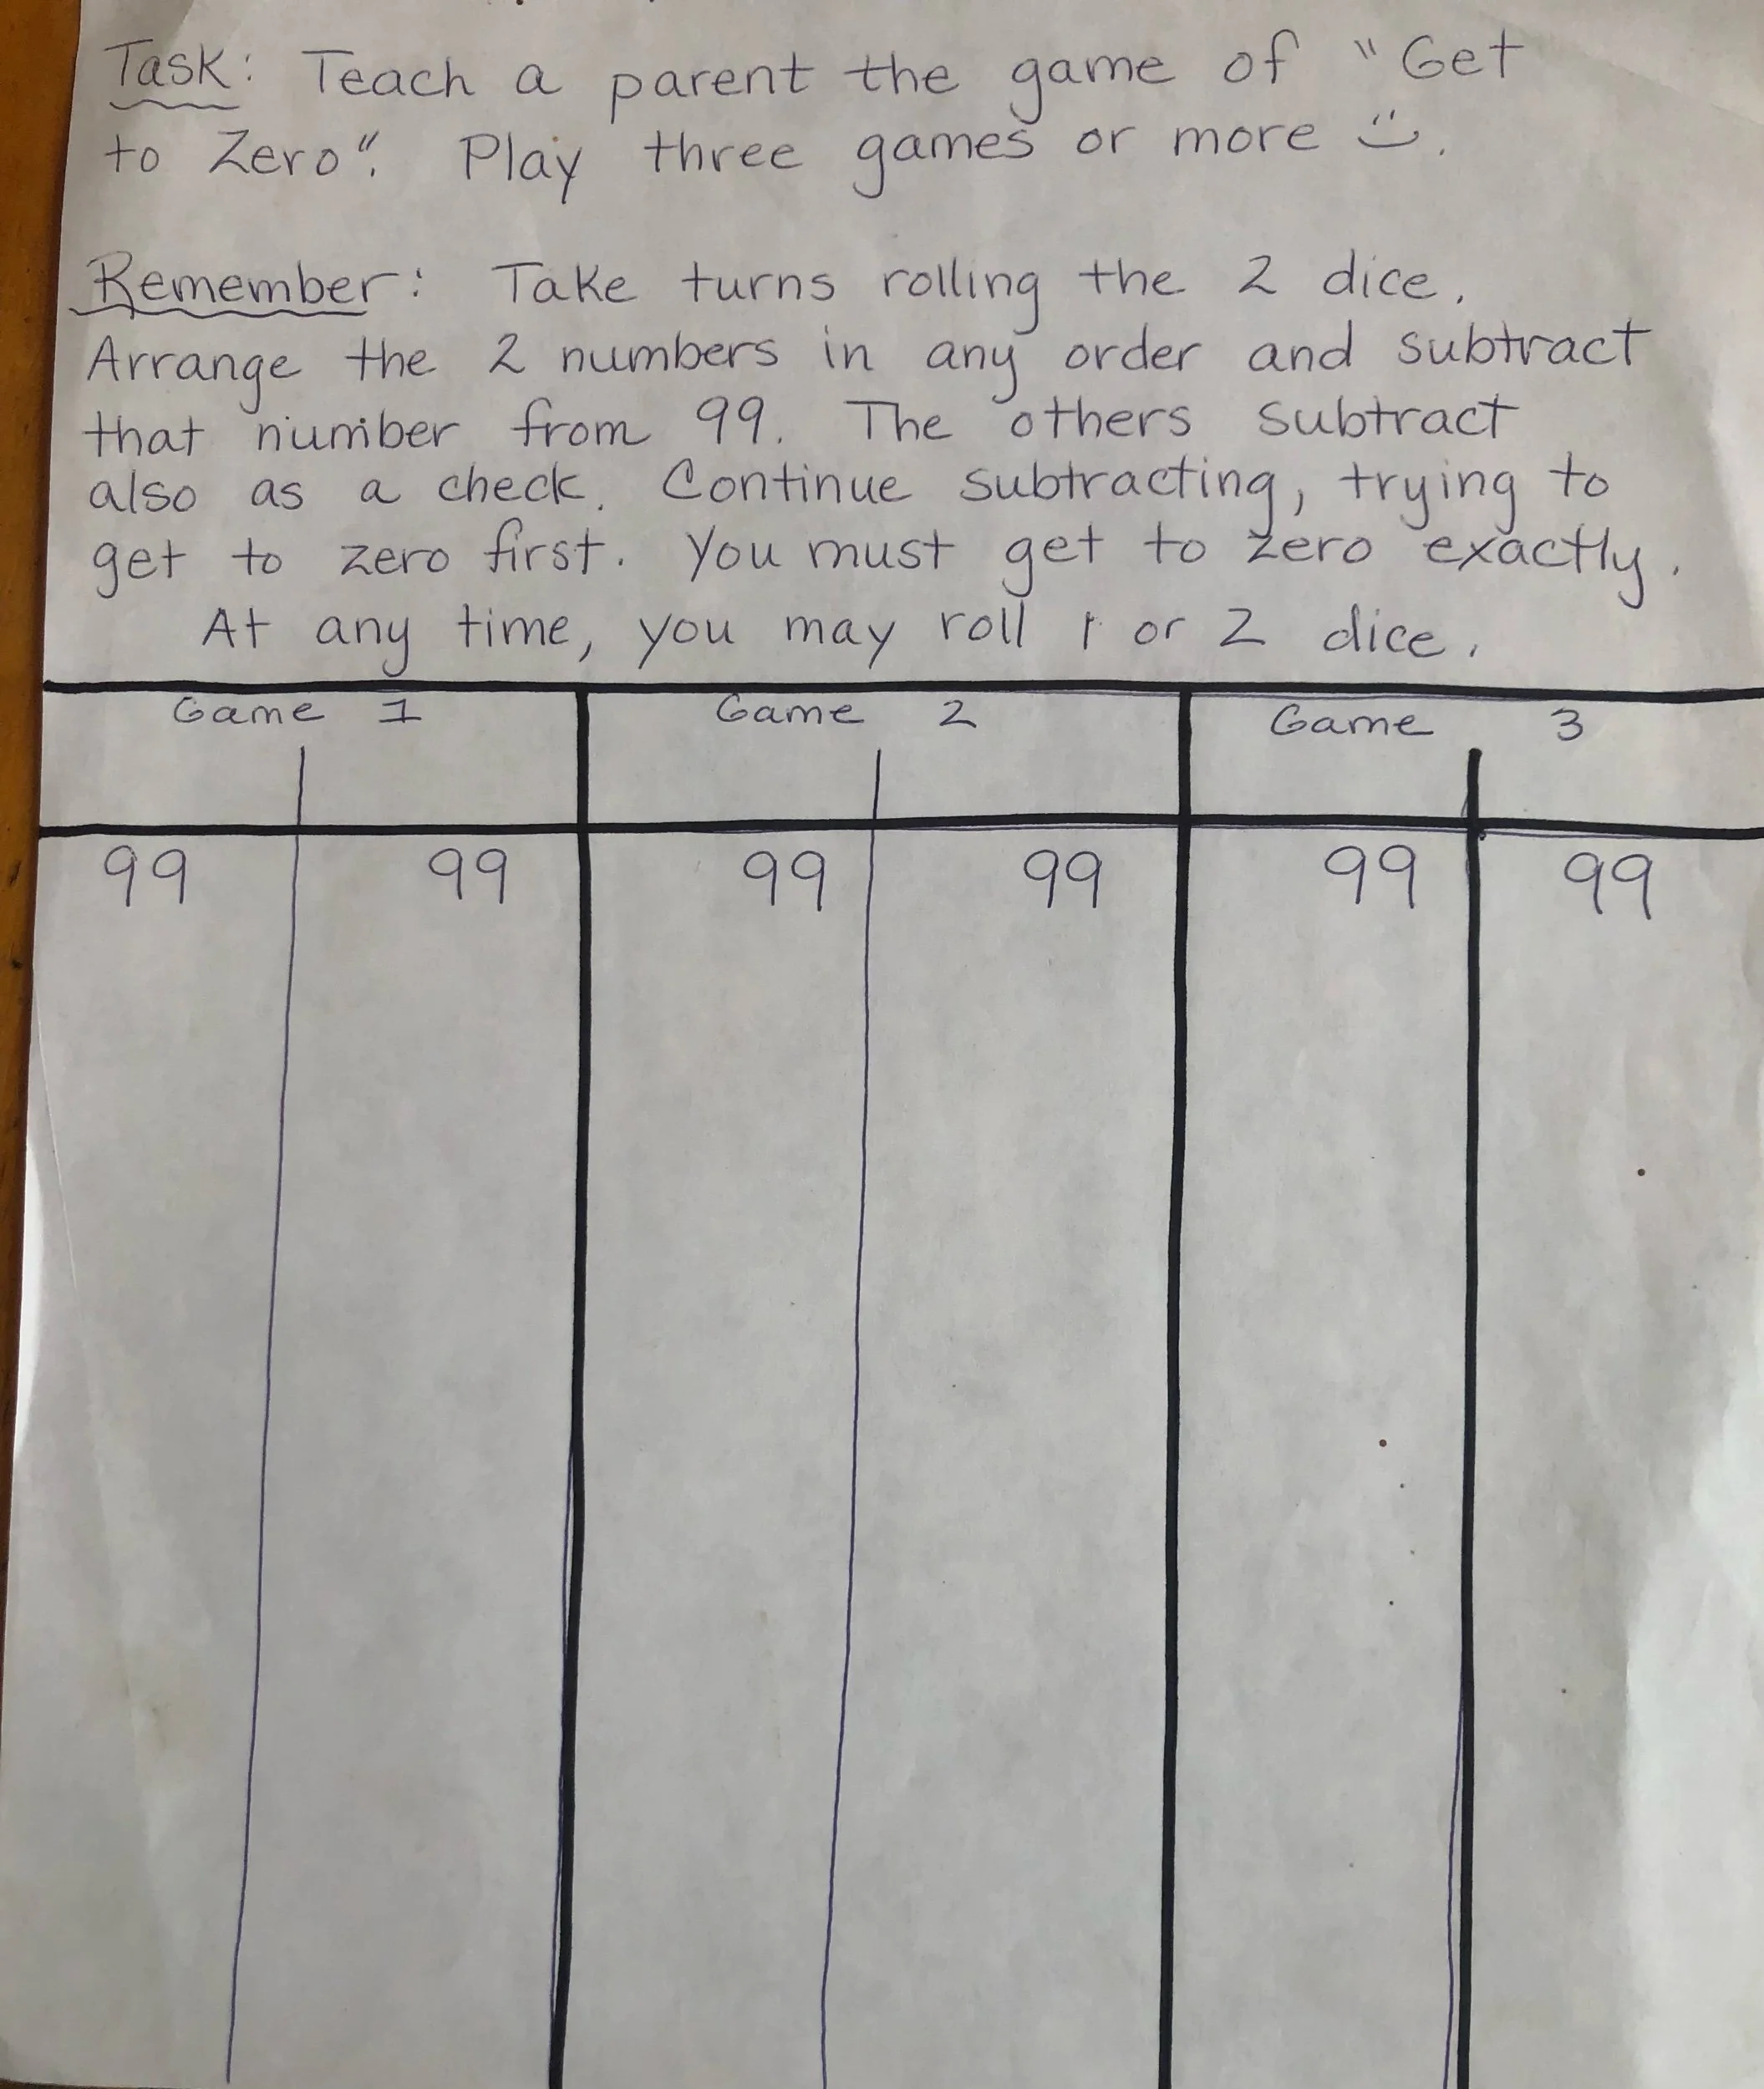 Task: Teach a parent the game of "Get
to Zero". Play three games or more :).
Remember: Take turns rolling the 2 dice.
Arrange the 2 numbers in any order and subtract
that number from 99. The others subtract
also as a check. Continue subtracting, trying to
get to zero first. You must get to zero exactly.
At any time, you may roll 1 or 2 dice.
Game 1 Game 2 Game 3
99 99 99 99 99 99